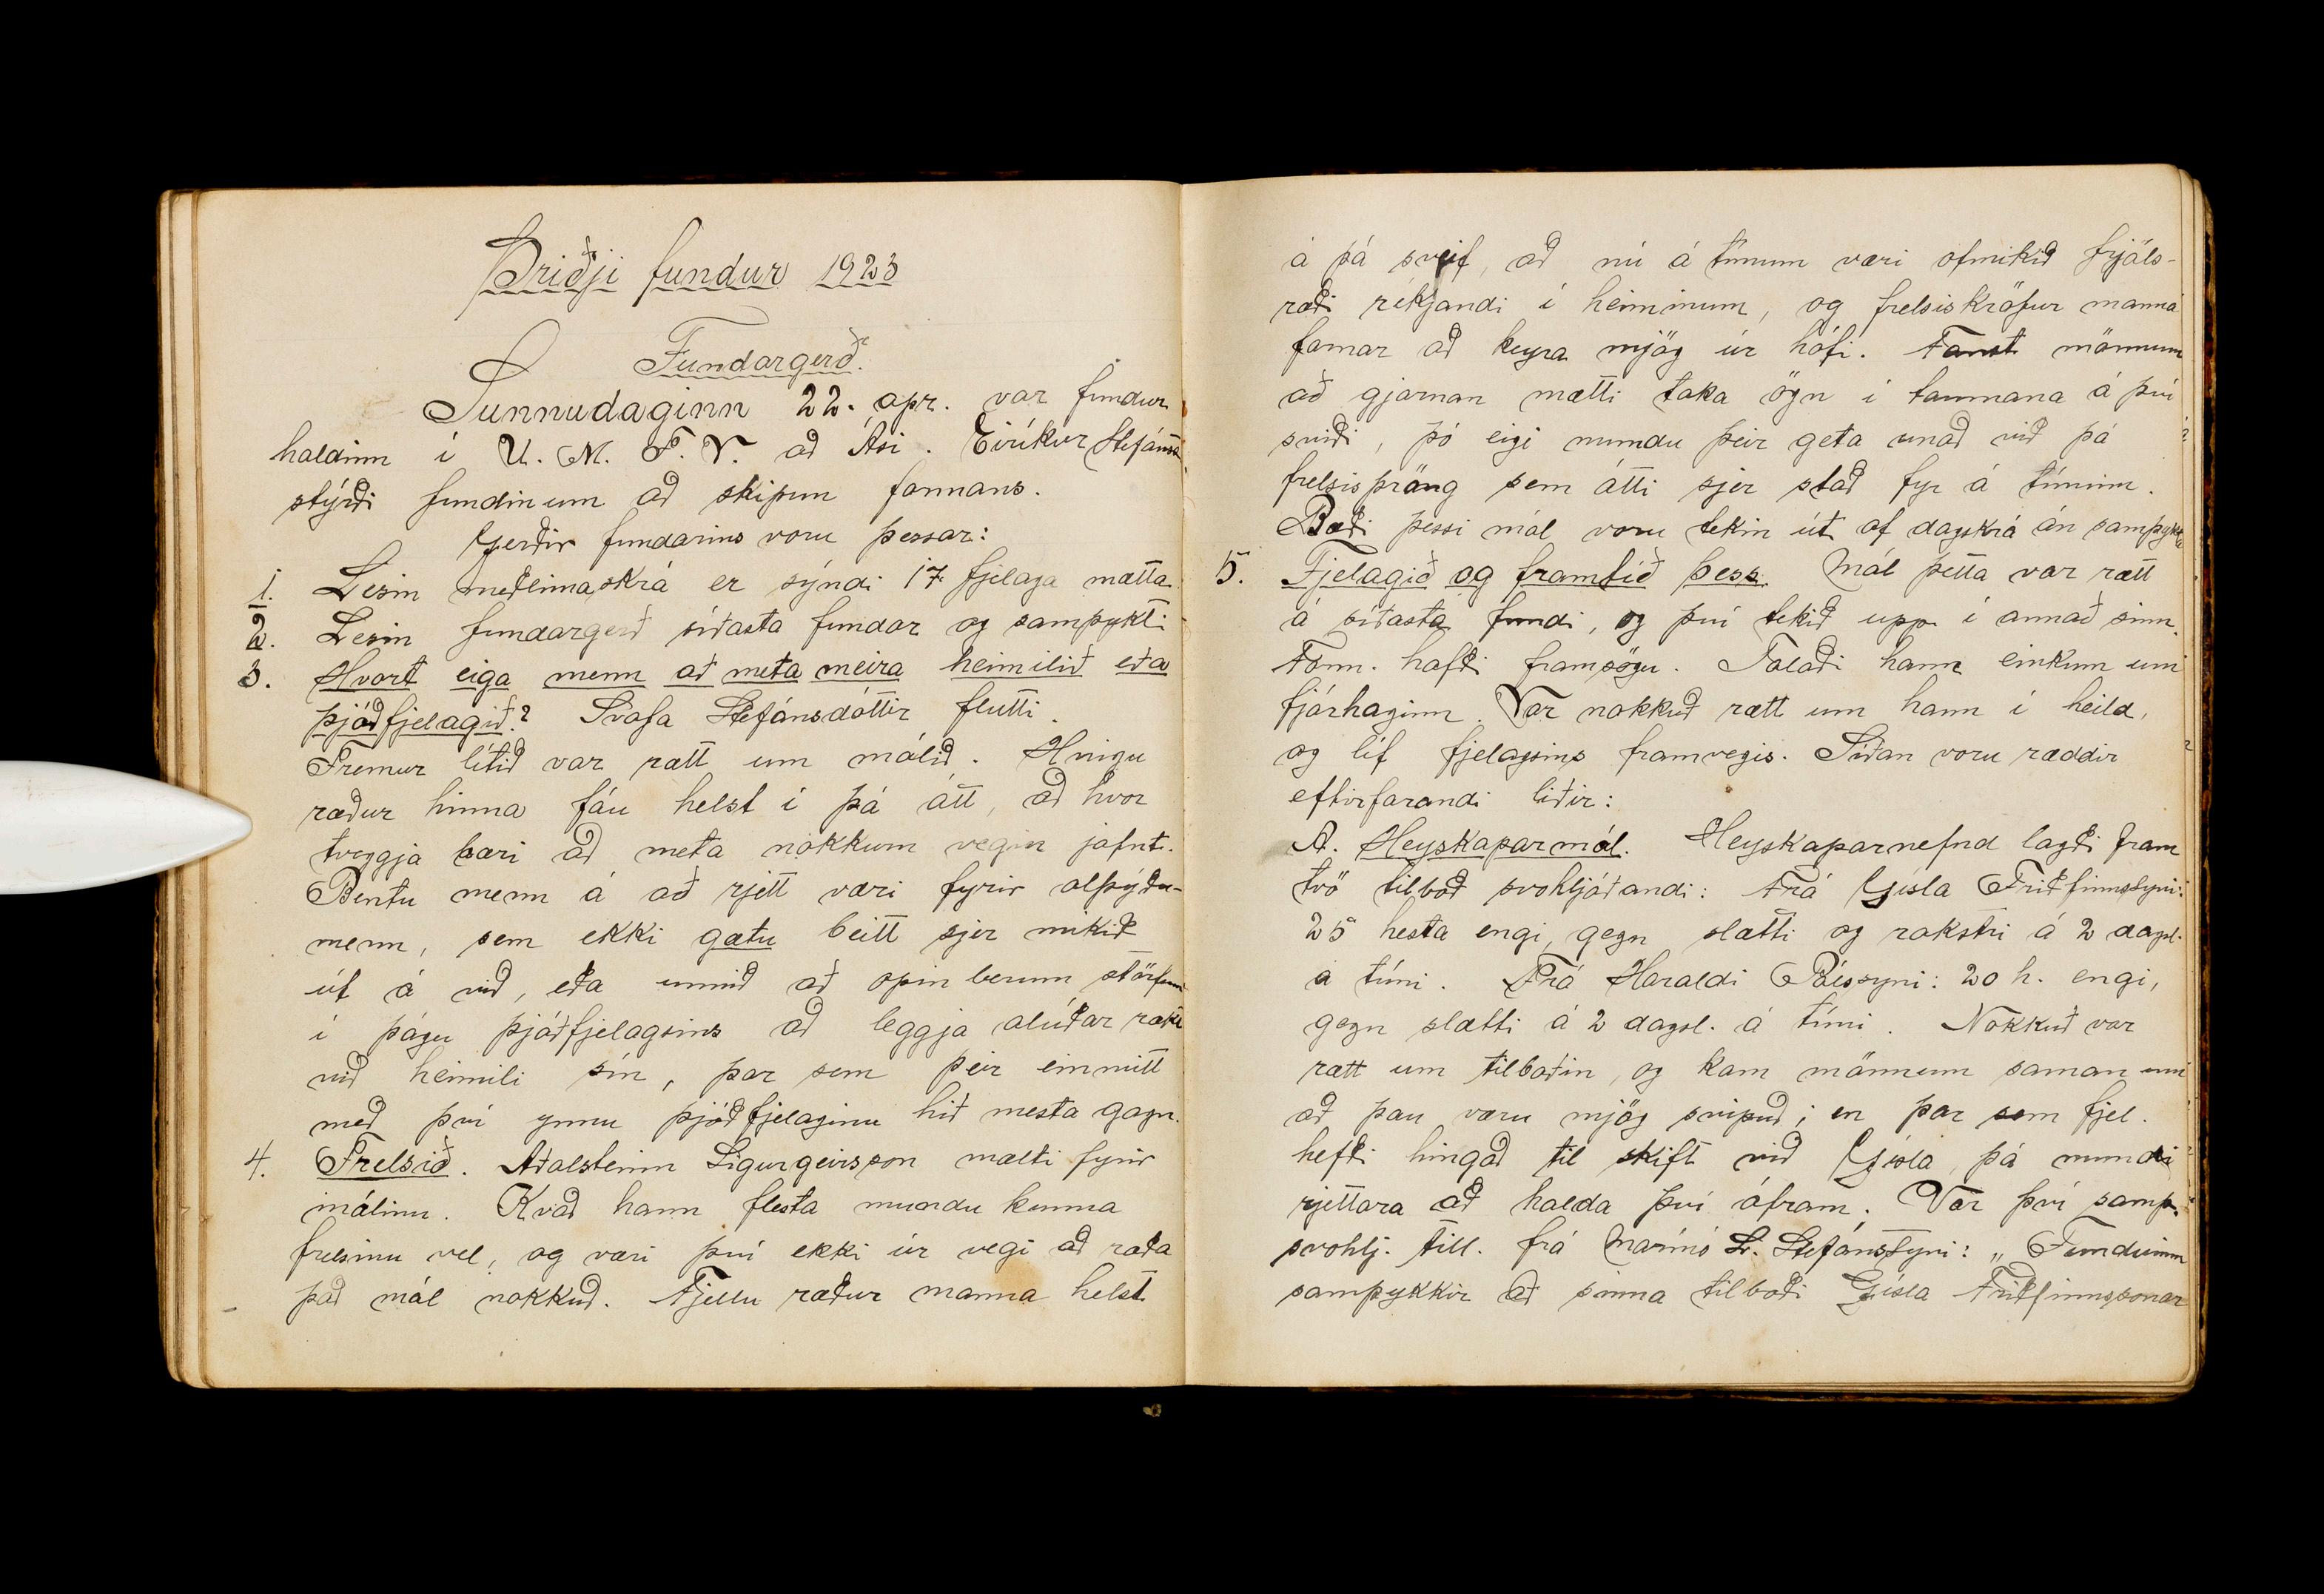 Þriðji fundur 1923
Fundargerð.
Sunnudaginn 22. apr. var fundur
haldinn í U. M. F. V. að Ási. Eiríkur Stefánss.
stýrði fundinum að skipun formans.
Gerðir fundarins voru þessar:
1. Lesin meðlimaskrá er sýndi 17 fjelaga mætta.
2. Lesin fundargerð síðasta fundar og samþykt.
3. Hvort eiga menn að meta meira heimilið eða
þjóðfjelagið? Svafa Stefánsdóttir flutti.
Fremur lítið var rætt um málið. Hnigu
ræður hinna fáu helst í þá átt, að hvor
tveggja bæri að meta nokkurn vegin jafnt.
Bentu menn á að rjett væri fyrir alþýðu-
menn, sem ekki gætu beitt sjer mikið
út á við, eða unnið að opinberum störfum
í þágu þjóðfjelagsins að leggja alúðar rækt
við heimili sín, þar sem þeir einmitt
með því ynnu þjóðfjelaginu hið mesta gagn.
4. Frelsið. Aðalsteinn Sigurgeirsson mælti fyrir
málinu. Kvað hann flesta mundu kunna
frelsinu vel, og væri því ekki úr vegi að ræða
það mál nokkuð. Fjellu ræður manna helst
á þá sveif, að nú á tímum væri ofmikið frjáls-
ræði ríkjandi í heiminum, og frelsiskröfur manna
farnar að keyra mjög úr hófi. Fanst mönnum
að gjarnan mætti taka ögn í taumana á því
sviði, þó eigi mundu þeir geta unað við þá
frelsisþröng sem átti sjer stað fyr á tímum.
Bæði þessi mál voru tekin út af dagskrá án samþykta
5. Fjelagið og framtíð þess. Mál þetta var rætt
á síðasta fundi, og því tekið upp í annað sinn.
Form. hafði framsögu. Talaði hann einkum um
fjárhaginn. Var nokkuð rætt um hann í heild,
og líf fjelagsins framvegis. Síðan voru ræddir
eftirfarandi liðir:
A. Heyskaparmál. Heyskaparnefnd lagði fram
tvö tilboð svohljóðandi: Frá Gísla Friðfinnssyni:
25 hesta engi, gegn slætti og rakstri á 2 dagsl.
á túni. Frá Haraldi Pálssyni: 20 h. engi,
gegn slætti á 2 dagsl. á túni. Nokkuð var
rætt um tilboðin, og kom mönnum saman um
að þau væru mjög svipuð; en þar sem fjel.
hefði hingað til skift við Gísla, þá mundi
rjettara að halda því áfram. Var því samþ.
svohlj. till. frá Marínó L. Stefánssyni: „Fundurinn
samþykkir að sinna tilboði Gísla Friðfinnssonar